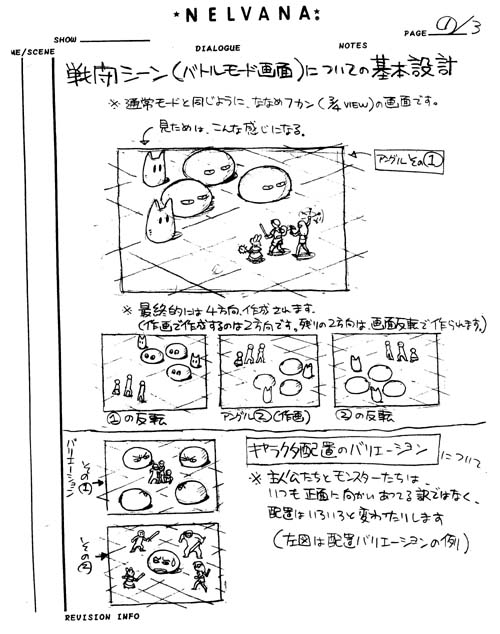 ★NELVANA:
SHOW
PAGE ①/3
ME/SCENE
DIALOGUE
NOTES
戦闘シーン(バトルモード画面)についての基本設計
※ 通常モードと同じように、ななめフカン(3/4 VIEW)の画面です。
見ためは、こんな感じになる。
アングルその①
※ 最終的には4方向、作成されます。
(作画で作成するのは2方向です。残りの2方向は、画面反転で作られます。)
①の反転
アングル②(作画)
②の反転
バリエーション
その①
その②
キャラクタ配置のバリエーション について
※ 主人公たちとモンスターたちは、
いつも正面に向かいあってる訳ではなく、
配置はいろいろと変わったりします
(左図は配置バリエーションの例)
REVISION INFO